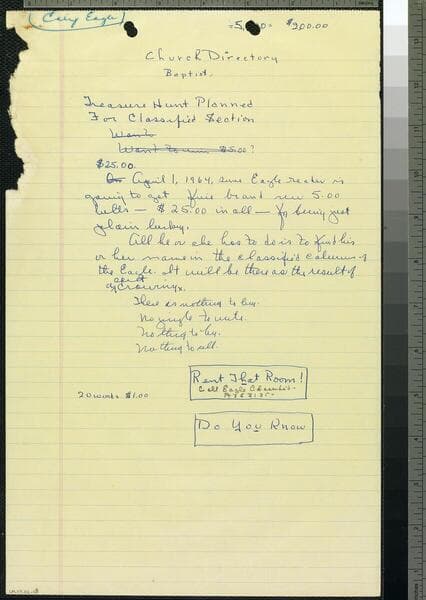 Calif Eagle
$200.00
Church Directory
Baptist.
Treasure Hunt Planned
For Classified Section
Want
Want to $5.00?
$25.00.
On April 1, 1964, some Eagle reader is
going to get five brand new 5.00
bills — $25.00 in all — for being just
plain lucky.
All he or she has to do is to find his
or her name in the classified columns of
the Eagle. It will be there as the result of
a
There is nothing to buy.
No jingle to write.
Nothing to buy.
Nothing to sell.
Rent That Room!
Call Eagle Classified
20 words $1.00
Do You Know